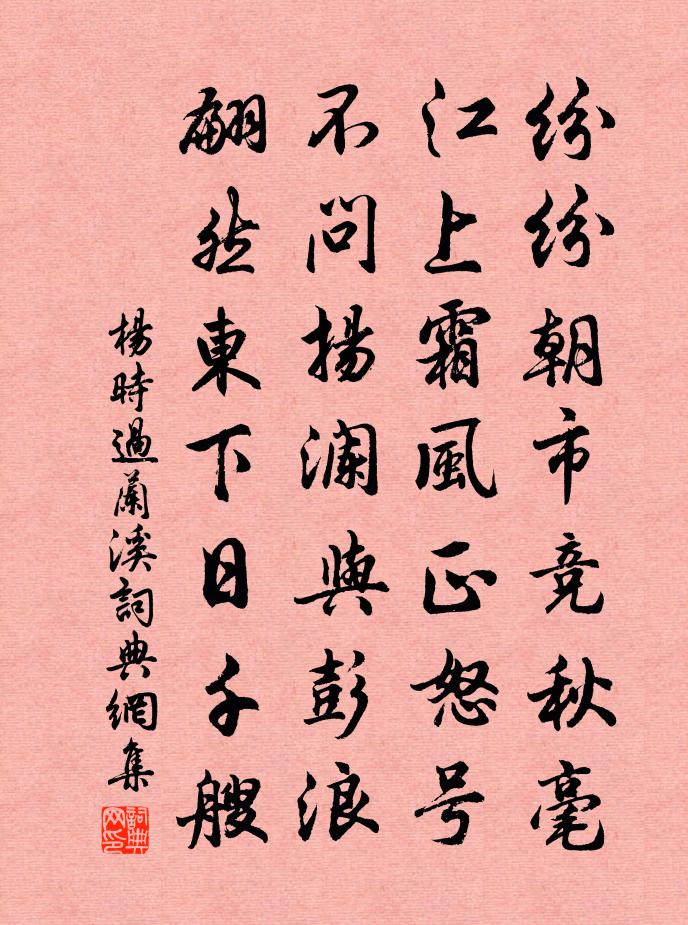 紛紛朝市竞秋毫
江上霜風正怒号
不問揚瀾與彭浪
翩然東下日千艘
楊時過蘭溪詞典網集
詞典网印